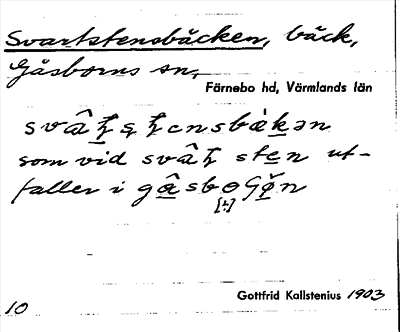 Svartstensbäcken, bäck,
Gåsborns sn,
Färnebo hd, Värmlands län
som vid sten ut-
faller i
Gottfrid Kallstenius 1903
10